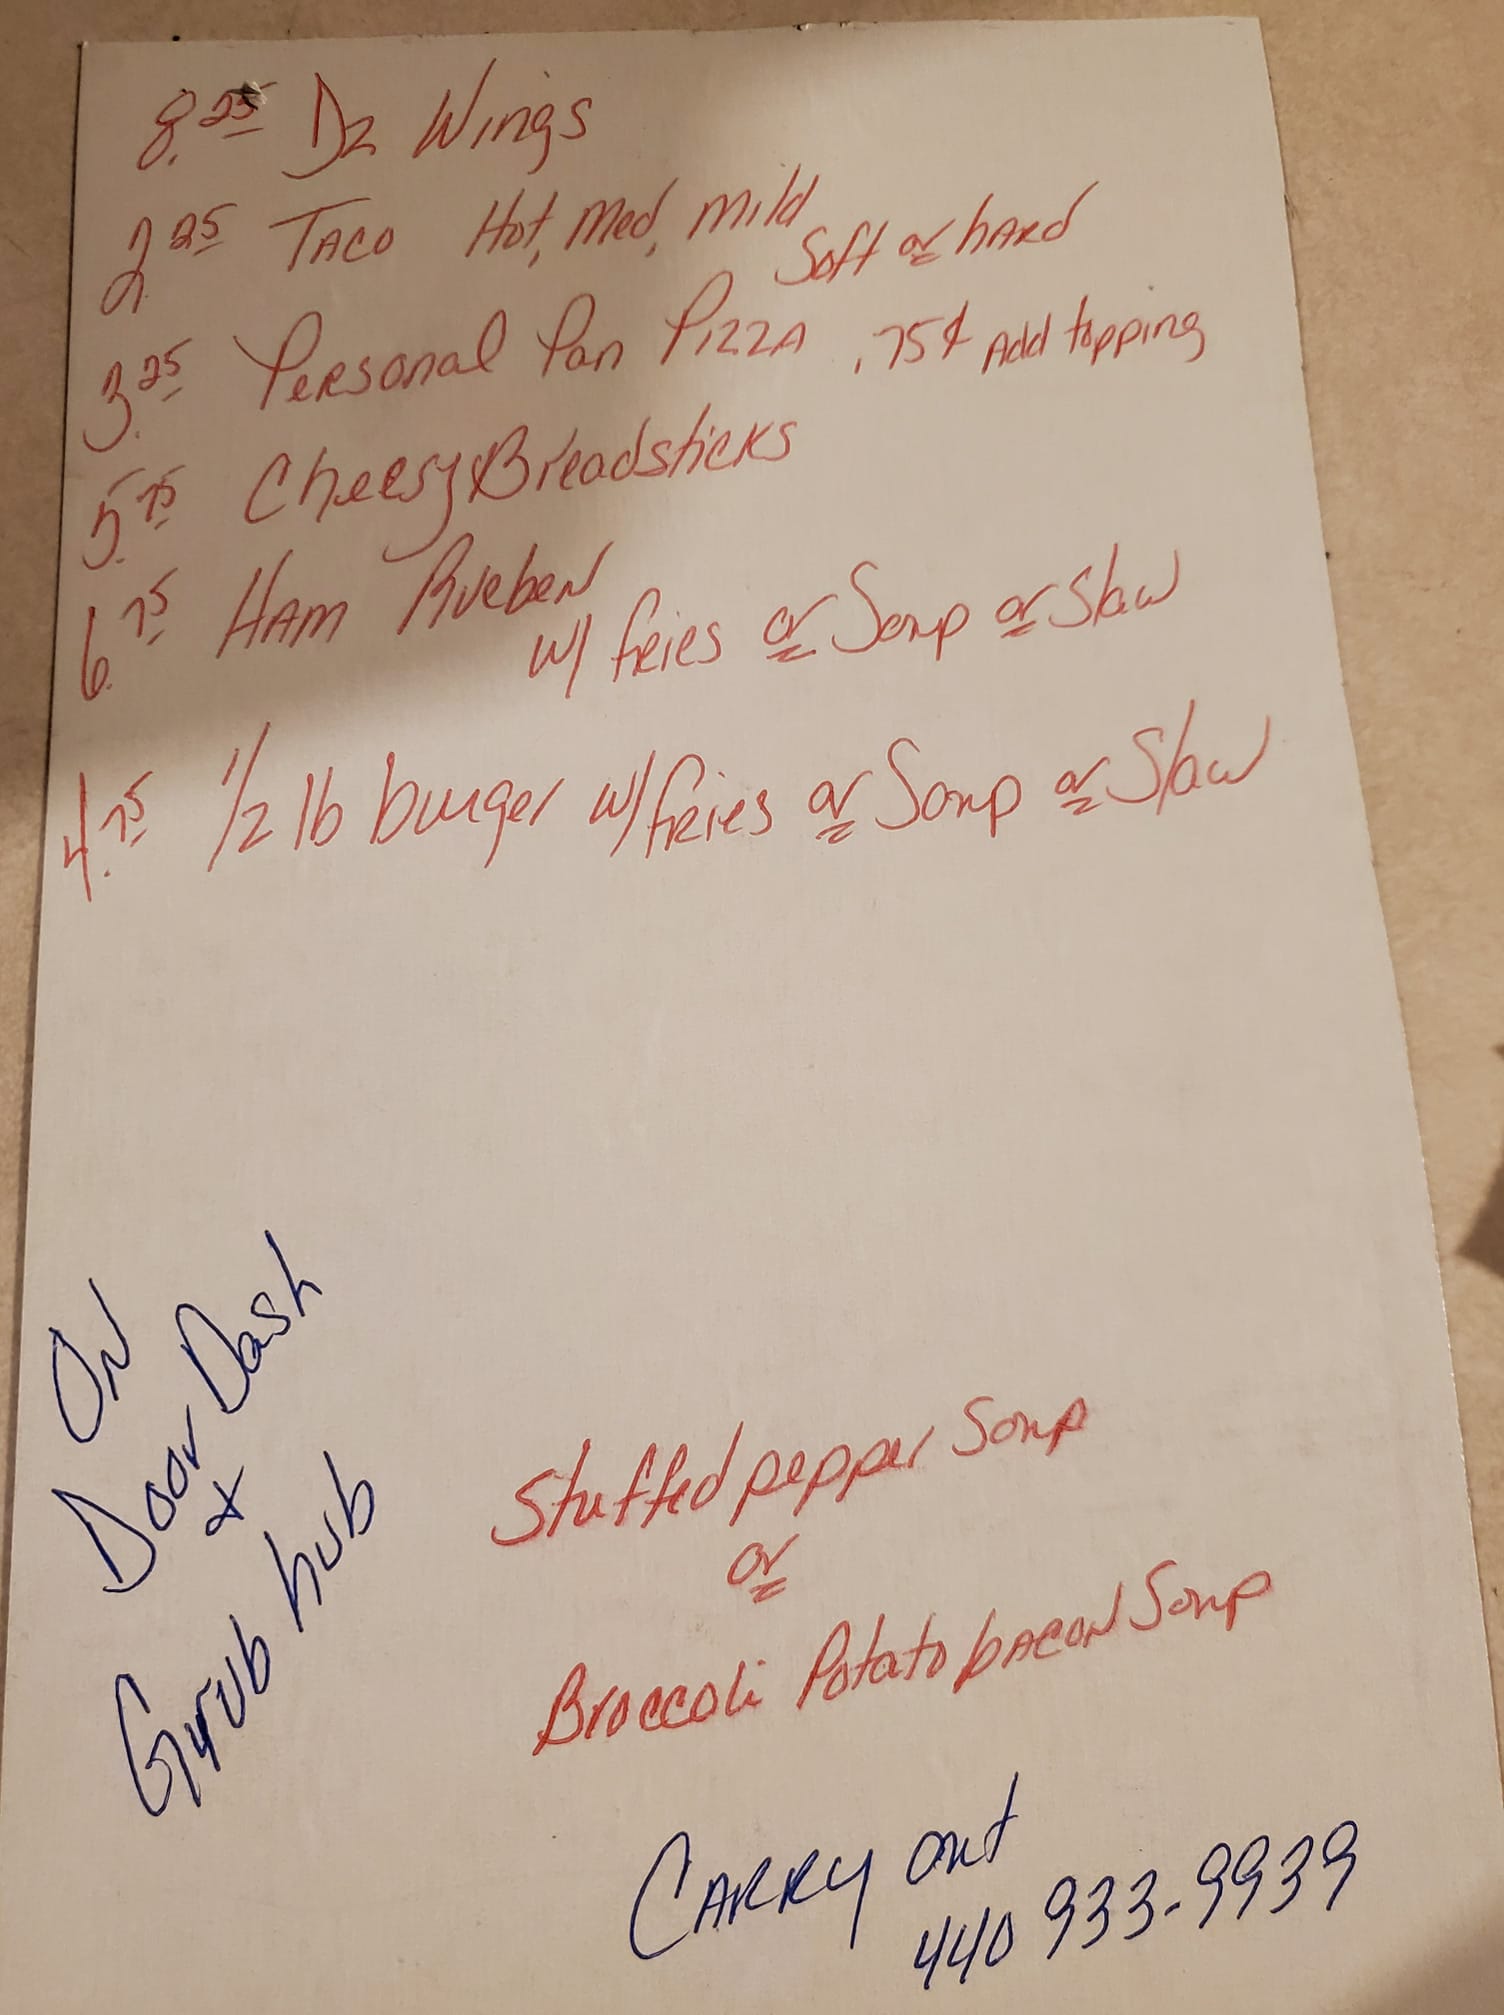 8.25 Dz Wings
2.25 Taco Hot, Med, Mild
Soft or hard
3.25 Personal Pan Pizza .75¢ Add topping
5.75 Cheesy Breadsticks
6.75 Ham Rueben
w/ fries or Soup or Slaw
4.75 1/2 lb burger w/ fries or Soup or Slaw
On
Door Dash
+
Grub hub
Stuffed pepper Soup
or
Broccoli Potato bacon Soup
Carry out
440 933-9939